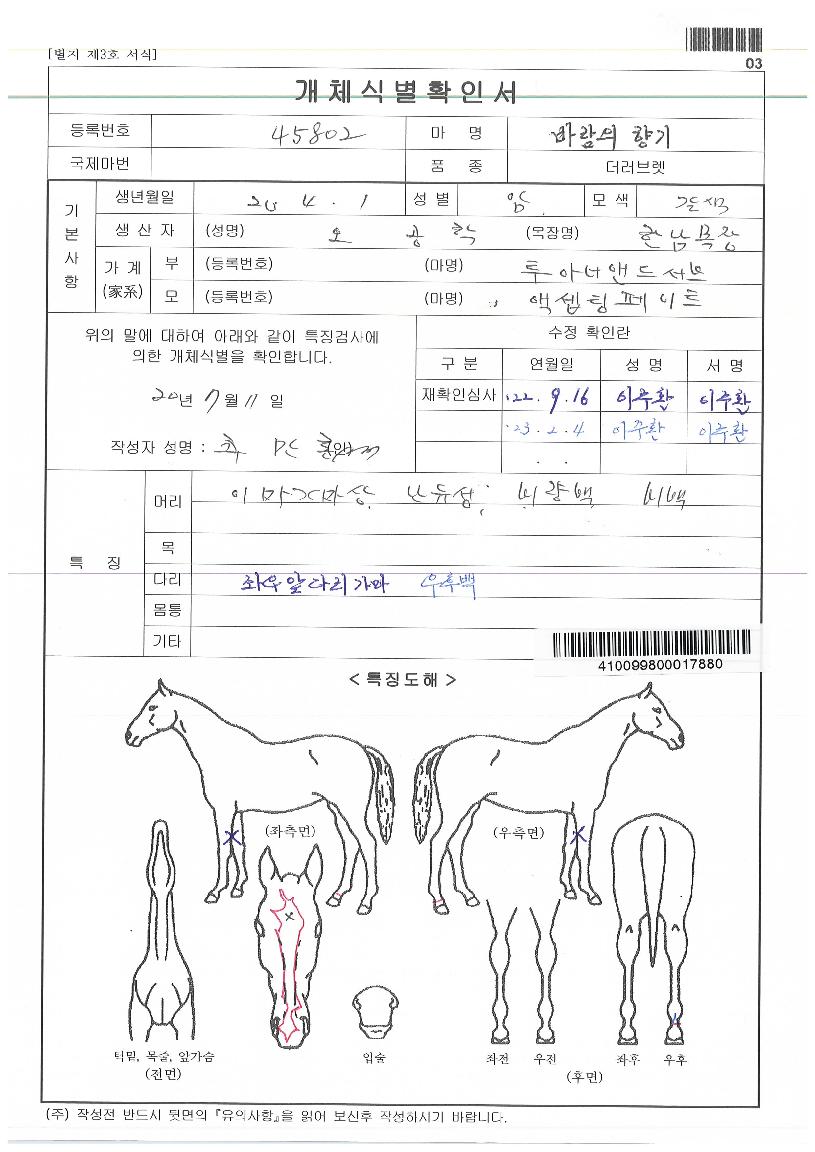 [별지 제3호 서식]
03
개체식별확인서
등록번호 45802 마 명 바람의 향기
국제마번 품 종 더러브렛
기본사항
생년월일 20 4 . 1 성별 암 모색 갈색
생산자 (성명) 오 공 학 (목장명) 한남목장
가계 (家系) 부 (등록번호) (마명) 투아너앤드서브
모 (등록번호) (마명) 액셉팅페이트
위의 말에 대하여 아래와 같이 특징검사에
의한 개체식별을 확인합니다.
20년 7월 11일
작성자 성명 :
수정 확인란
구분 연월일 성명 서명
재확인심사 '22. 9. 16 이주환 이주환
'23. 2. 4 이주환 이주환
. .
특 징
머리 이마가마상 난유성, 비량백 비백
목
다리 좌우앞다리가마 우후백
몸통
기타
410099800017880
<특징도해>
(좌측면) (우측면)
턱밑, 목줄, 앞가슴
(전면)
입술
좌전 우전 좌후 우후
(후면)
(주) 작성전 반드시 뒷면의 『유의사항』을 읽어 보신후 작성하시기 바랍니다.